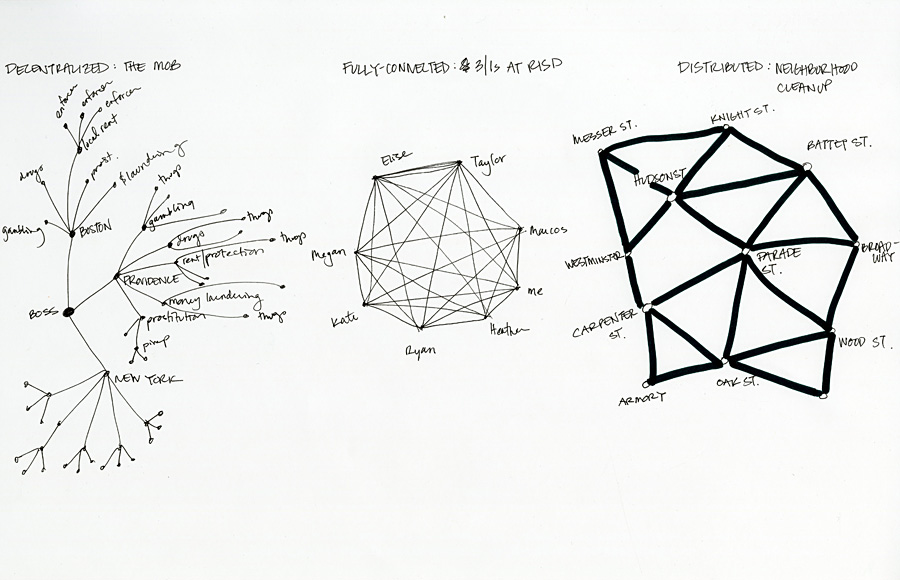 DECENTRALIZED: THE MOB
enforcer
enforcer
enforcer
local rent
drugs
prost.
laundering
gambling
BOSTON
thugs
gambling
thugs
drugs
thugs
rent/protection
PROVIDENCE
money laundering
thugs
prostitution
pimp
BOSS
NEW YORK
FULLY-CONNECTED: 3/1s AT RISD
Elise
Taylor
Marcos
me
Heather
Ryan
Kate
Megan
DISTRIBUTED: NEIGHBORHOOD
CLEANUP
KNIGHT ST.
MESSER ST.
BATTEY ST.
HUDSON ST
WESTMINSTER
PARADE
ST.
BROAD-
WAY
CARPENTER
ST.
WOOD ST.
OAK ST.
ARMORY